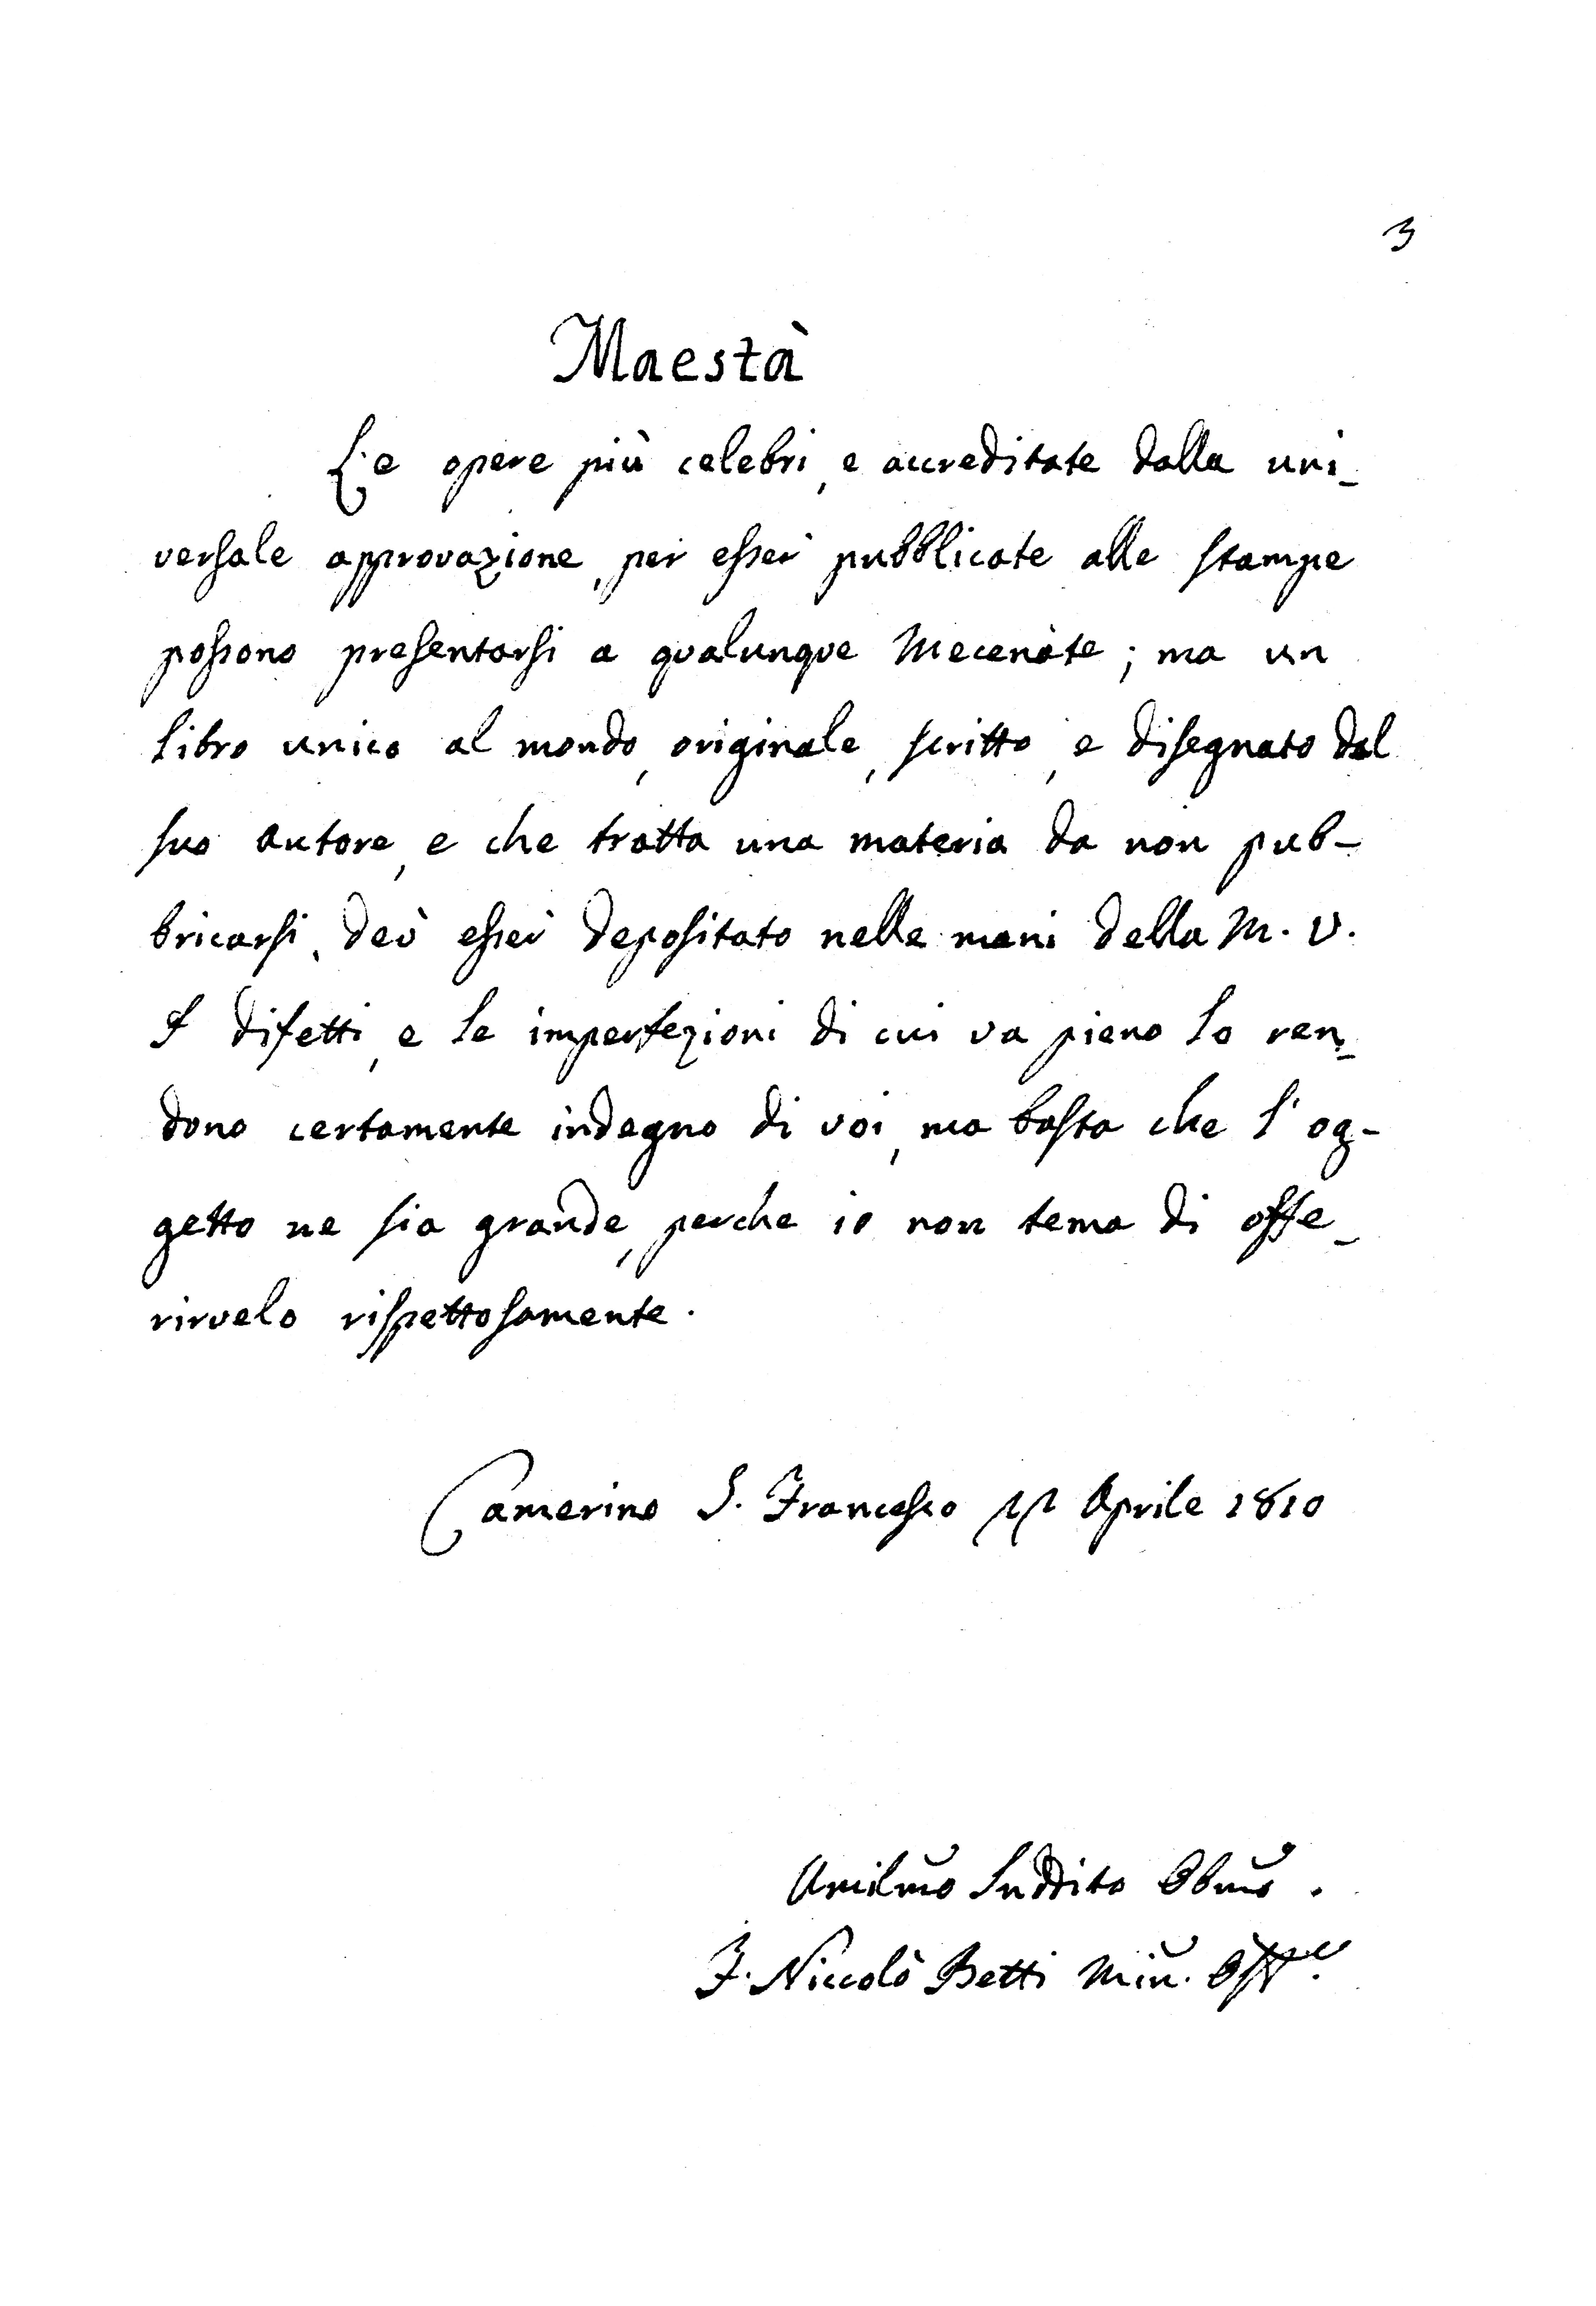 3
Maestà
Le opere più celebri, e accreditate dalla uni_
versale approvazione, per esser pubblicate alle stampe
possono presentarsi a qualunque Mecenate; ma un
libro unico al mondo, originale, scritto, e disegnato dal
suo autore, e che tratta una materia da non pub-
bricarsi, deò esser depositato nelle mani della M. V.
I difetti, e le imperfezioni di cui va pieno lo ren_
dono certamente indegno di voi, ma basta che l'og-
getto ne sia grande, perche io non tema di offe_
rirvelo rispettosamente.
Camerino S. Francesco Aprile 1810
Umilmo Suddito Obmo.
F. Niccolò Betti Min.